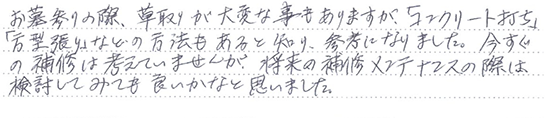 お墓参りの際、草取りが大変な事もありますが、「コンクリート打ち」
「石張り」などの方法もあると知り、参考になりました。今すぐ
の補修は考えていませんが、将来の補修メンテナンスの際は
検討してみても良いかなと思いました。